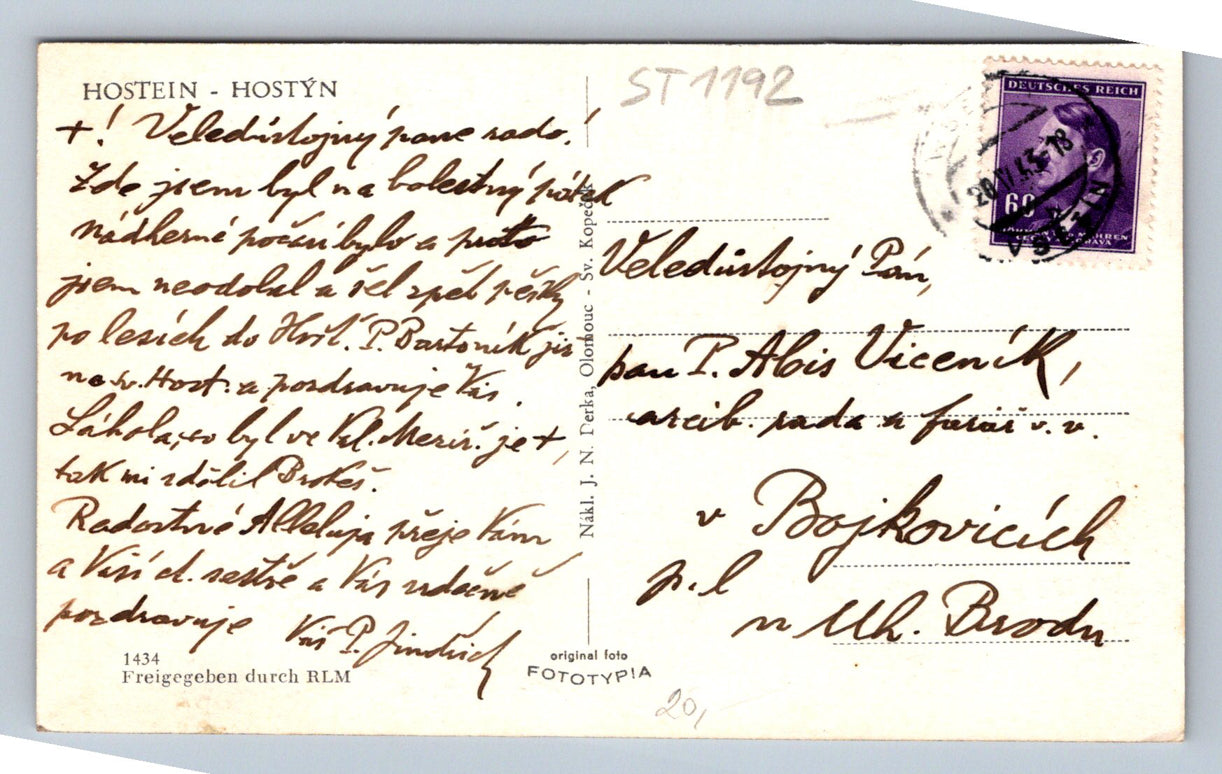 HOSTEIN - HOSTÝN
+! Veledůstojný pane rado!
Zde jsem byl na bolestný pátek
nádherné počasí bylo a proto
jsem neodolal a šel zpět pěšky
po lesích do Host. P. Bartoník již
na sv. Host. a pozdravuje Vás.
Láhola, co byl ve Val. Meziř. je +,
tak mi sdělil Brokeš.
Radostné Alleluja přeje Vám
a Vaší ct. sestře a Vás srdečně
pozdravuje Váš P. Jindřich
1434
Freigegeben durch RLM
Nákl. J. N. Derka, Olomouc - Sv. Kopeček
original foto
FOTOTYPIA
ST 1192
DEUTSCHES REICH
60
VSETIN
Veledůstojný Pán,
pan P. Alois Viceník,
arcib. rada a farář v. v.
v Bojkovicích
p. l
u Uh. Brodu
20,-